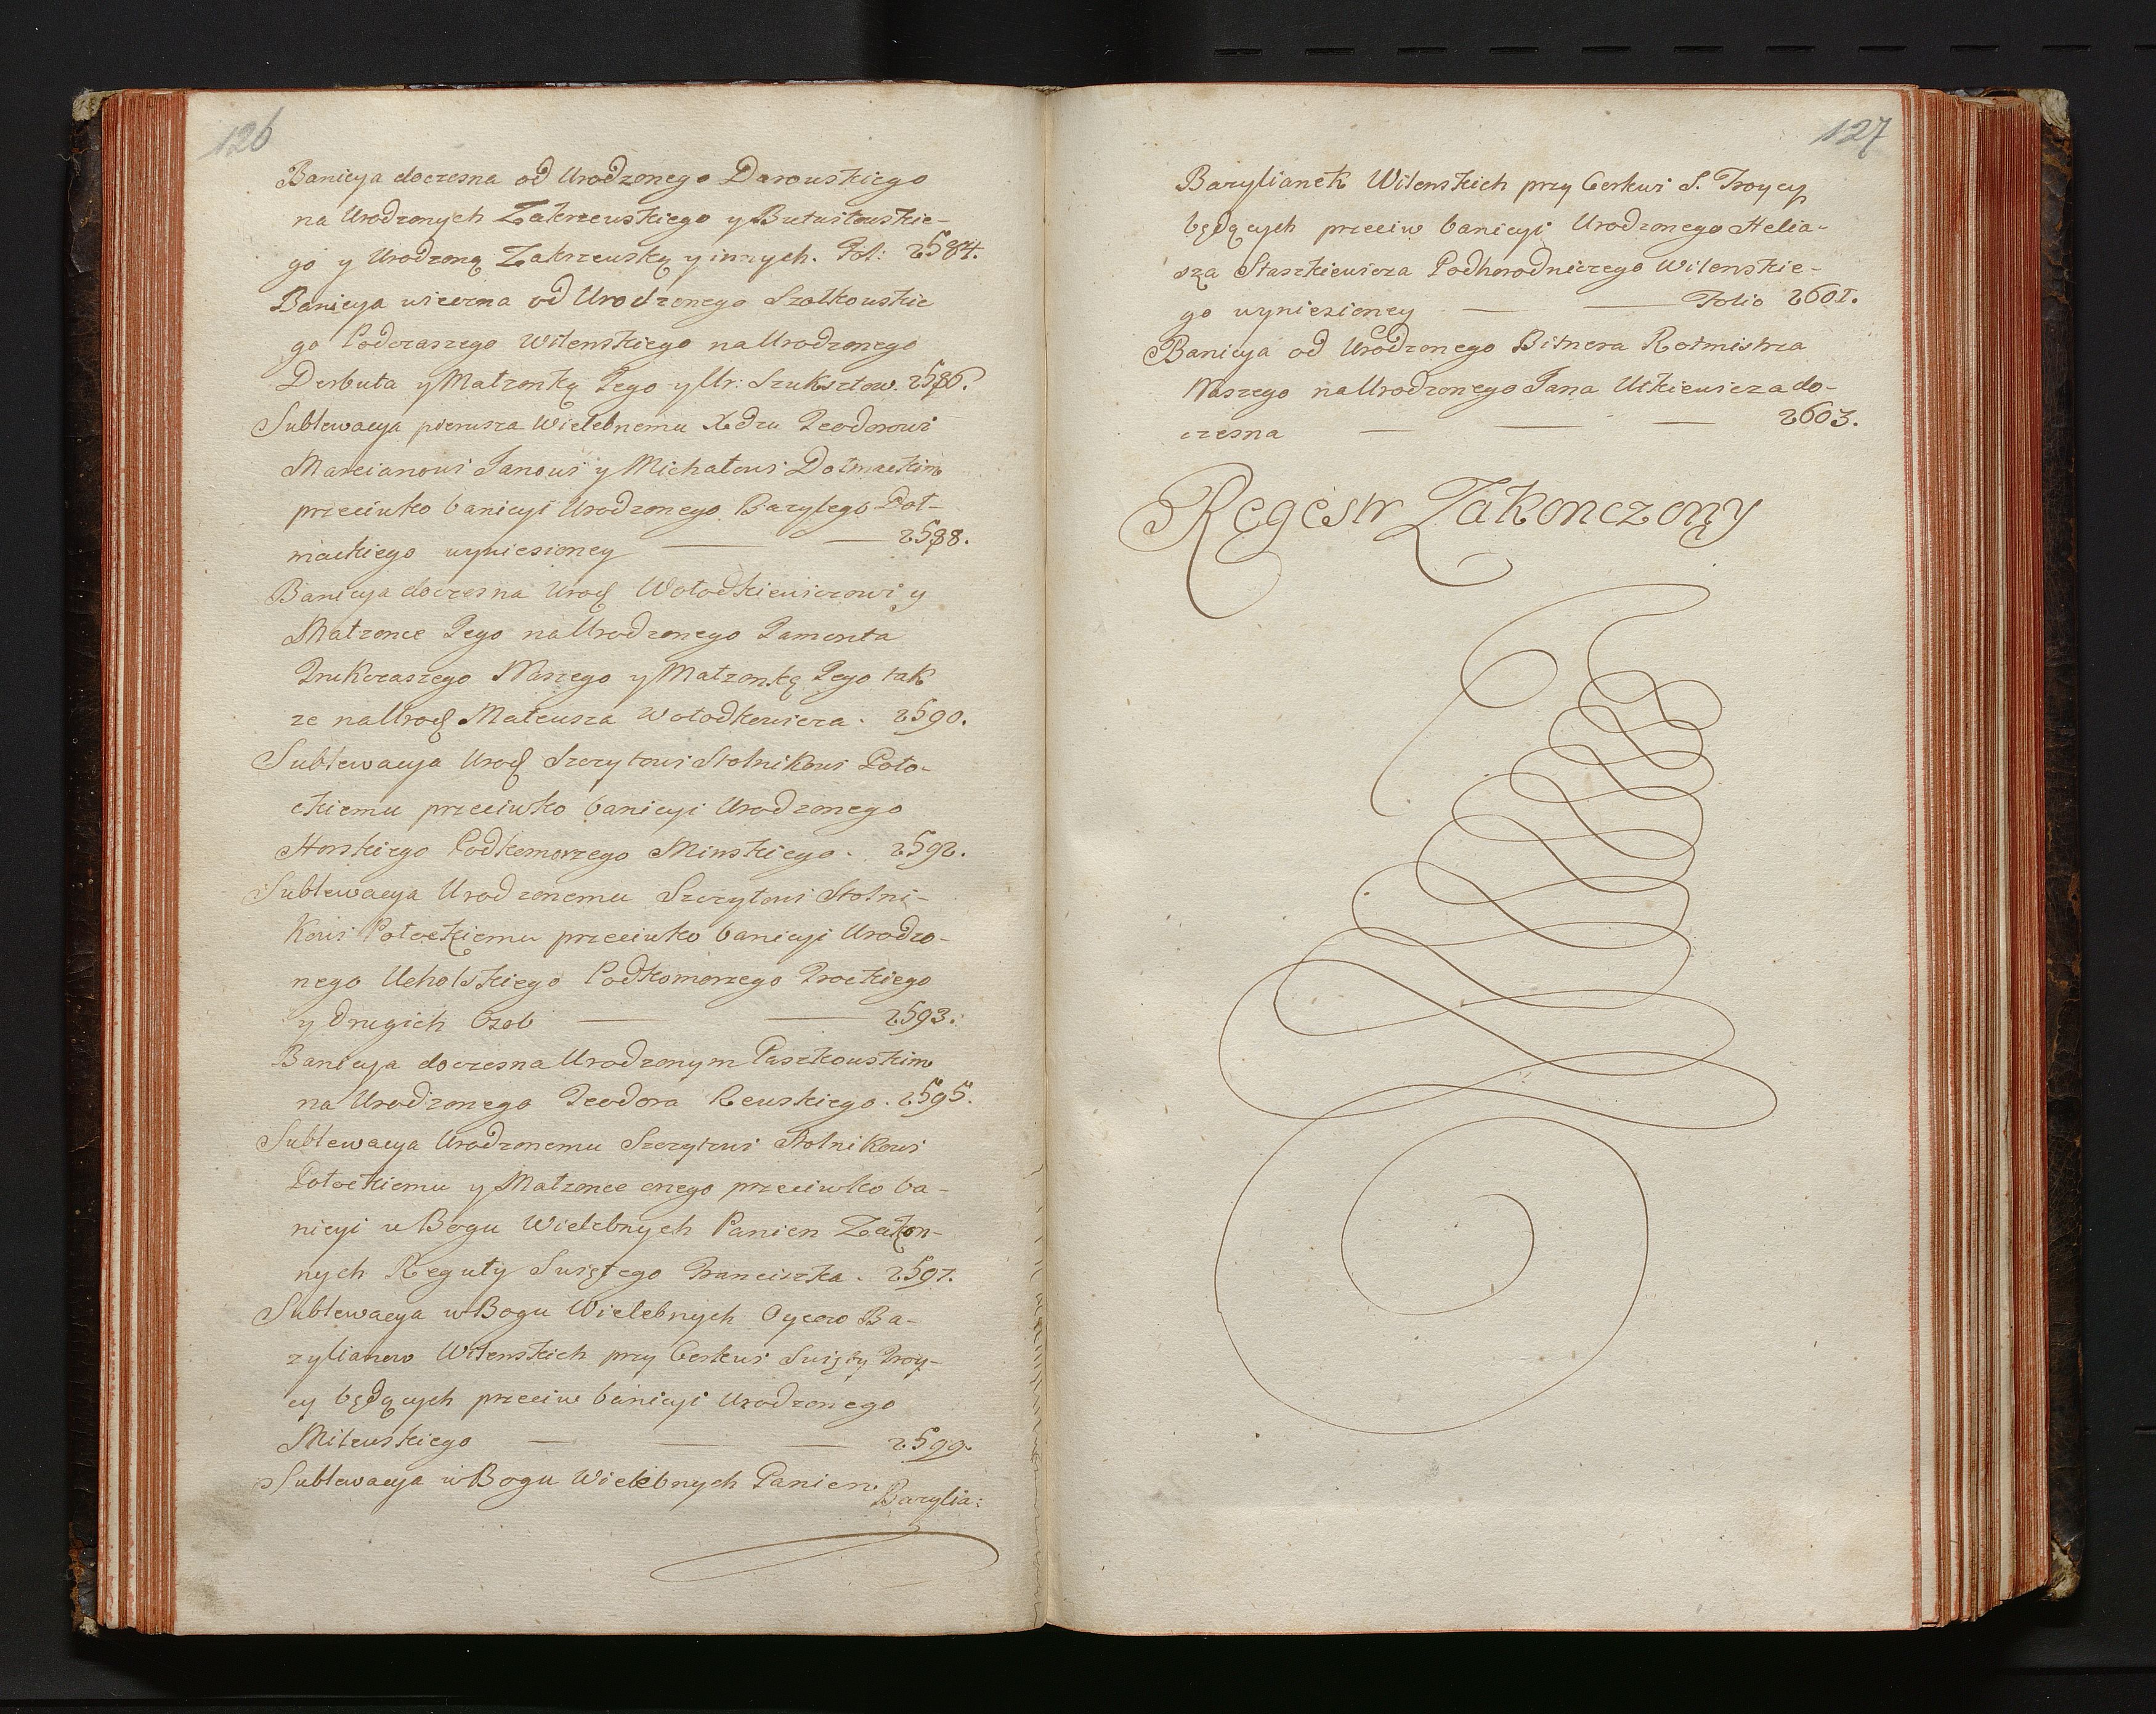 126
Banicya doczesna od Urodzonego Darowskiego
na Urodzonych Zakrzewskiego y Butultowskie-
go y Urodzoną Zakrzewską y innych. Fol: 2584.
Banicya wieczna od Urodzonego Szołkowskie
go Podczaszego Wilenskiego na Urodzonego
Derbuta y Małzonkę Jego y Ur: Szuksztow. 2586.
Sublewacya pierwsza Wielebnemu Xdzu Teodorowi
Marcianowi Janowi y Michałowi Dołmackim
przeciwko banicyi Urodzonego Bazylego Doł-
mackiego wyniesioney 2588.
Banicya doczesna Urod Wołodkiewiczowi y
Małzonce Jego na Urodzonego Jamonta
Trukczaszego Naszego y Małzonkę Jego tak
ze na Urod Mateusza Wołodkewicza. 2590.
Sublewacya Urod Szczytowi Stolnikowi Poło-
ckiemu przeciwko banicyi Urodzonego
Horskiego Podkomorzego Minskiego. 2592.
Sublewacya Urodzonemu Szczytowi Stolni-
kowi Połockiemu przeciwko banicyi Urodzo-
nego Ucholskiego Podkomorzego Trockiego
y drugich Osob 2593.
Banicya doczesna Urodzonym Paszkowskim
na Urodzonego Teodora Rewskiego. 2595.
Sublewacya Urodzonemu Szczytowi Stolnikowi
Połockiemu y Małzonce onego przeciwko ba-
nicyi w Bogu Wielebnych Panien Zakon-
nych Reguły Swiętego Franciszka. 2597.
Sublewacya w Bogu Wielebnych Oycow Ba-
zylianow Wilenskich przy Cerkwi Swięty Troy-
cy będących przeciw banicyi Urodzonego
Milewskiego 2599.
Sublewacya w Bogu Wielebnych Panien
Bazylia:
127
Bazylianek Wilenskich przy Cerkwi S. Troycy
będących przeciw banicyi Urodzonego Helia-
sza Staszkiewicza Podhorodniczego Wilenskie-
go wyniesioney Folio 2601.
Banicya od Urodzonego Bitnera Rotmistrza
Naszego na Urodzonego Jana Utkiewicza do-
czesna 2603.
Regestr Zakonczony